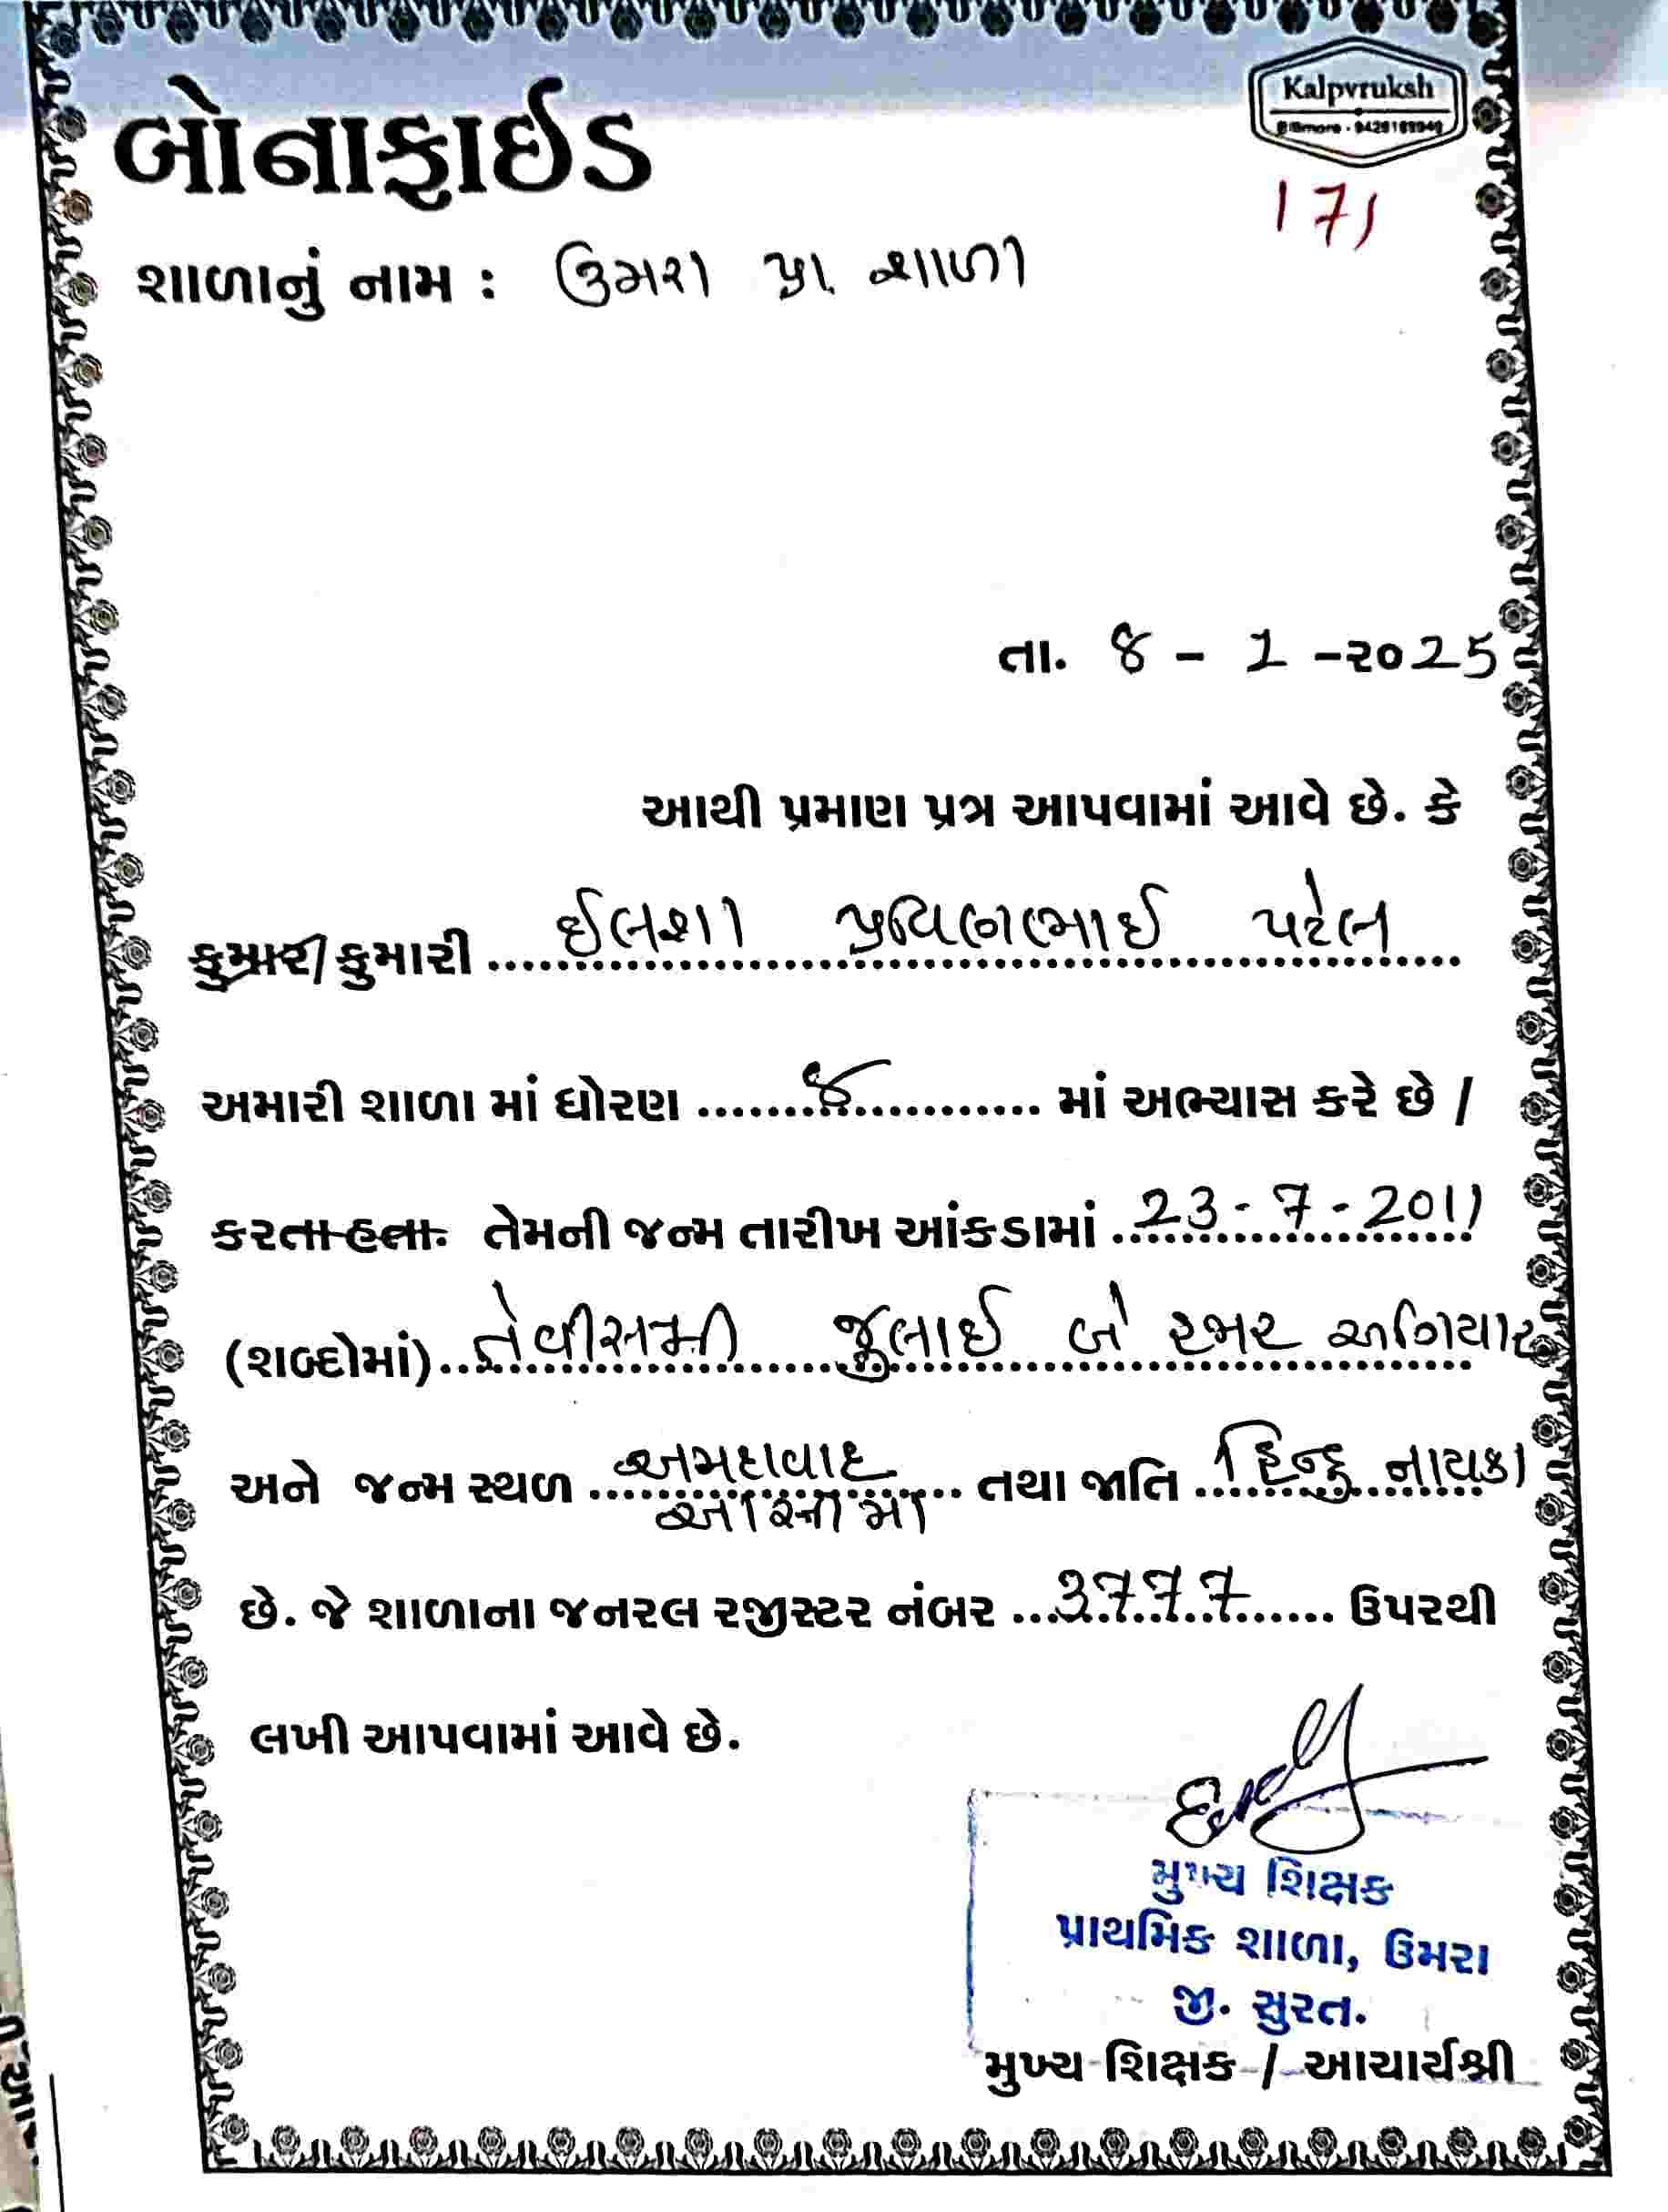 Kalpvruksh
બોનાફાઈડ
171
શાળાનું નામ : ઉમરા પ્રા. શાળા
તા. 8 - 1 -૨૦25
આથી પ્રમાણ પત્ર આપવામાં આવે છે. કે
કુમાર/કુમારી ઈલશા પ્રવિણભાઈ પટેલ
અમારી શાળા માં ધોરણ ૪ માં અભ્યાસ કરે છે /
કરતા હતા. તેમની જન્મ તારીખ આંકડામાં 23-7-2011
(શબ્દોમાં) તેવીસમી જુલાઈ બે હજાર અગિયાર
અને જન્મ સ્થળ અમદાવાદ તથા જાતિ હિન્દુ નાયકા
છે. જે શાળાના જનરલ રજીસ્ટર નંબર 3777 ઉપરથી
લખી આપવામાં આવે છે.
મુખ્ય શિક્ષક
પ્રાથમિક શાળા, ઉમરા
જી. સુરત.
મુખ્ય શિક્ષક / આચાર્યશ્રી